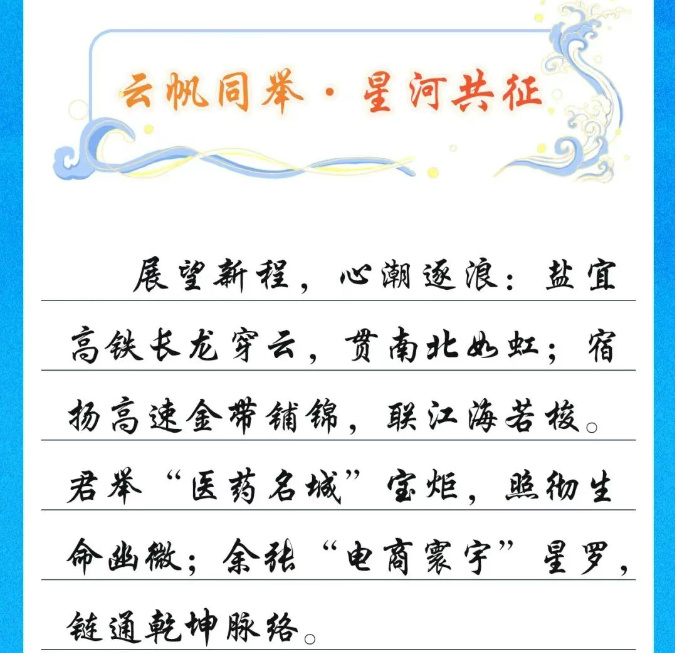 云帆同举·星河共征
展望新程，心潮逐浪：盐宜
高铁长龙穿云，贯南北如虹；宿
扬高速金带铺锦，联江海若梭。
君举“医药名城”宝炬，照彻生
命幽微；余张“电商寰宇”星罗，
链通乾坤脉络。